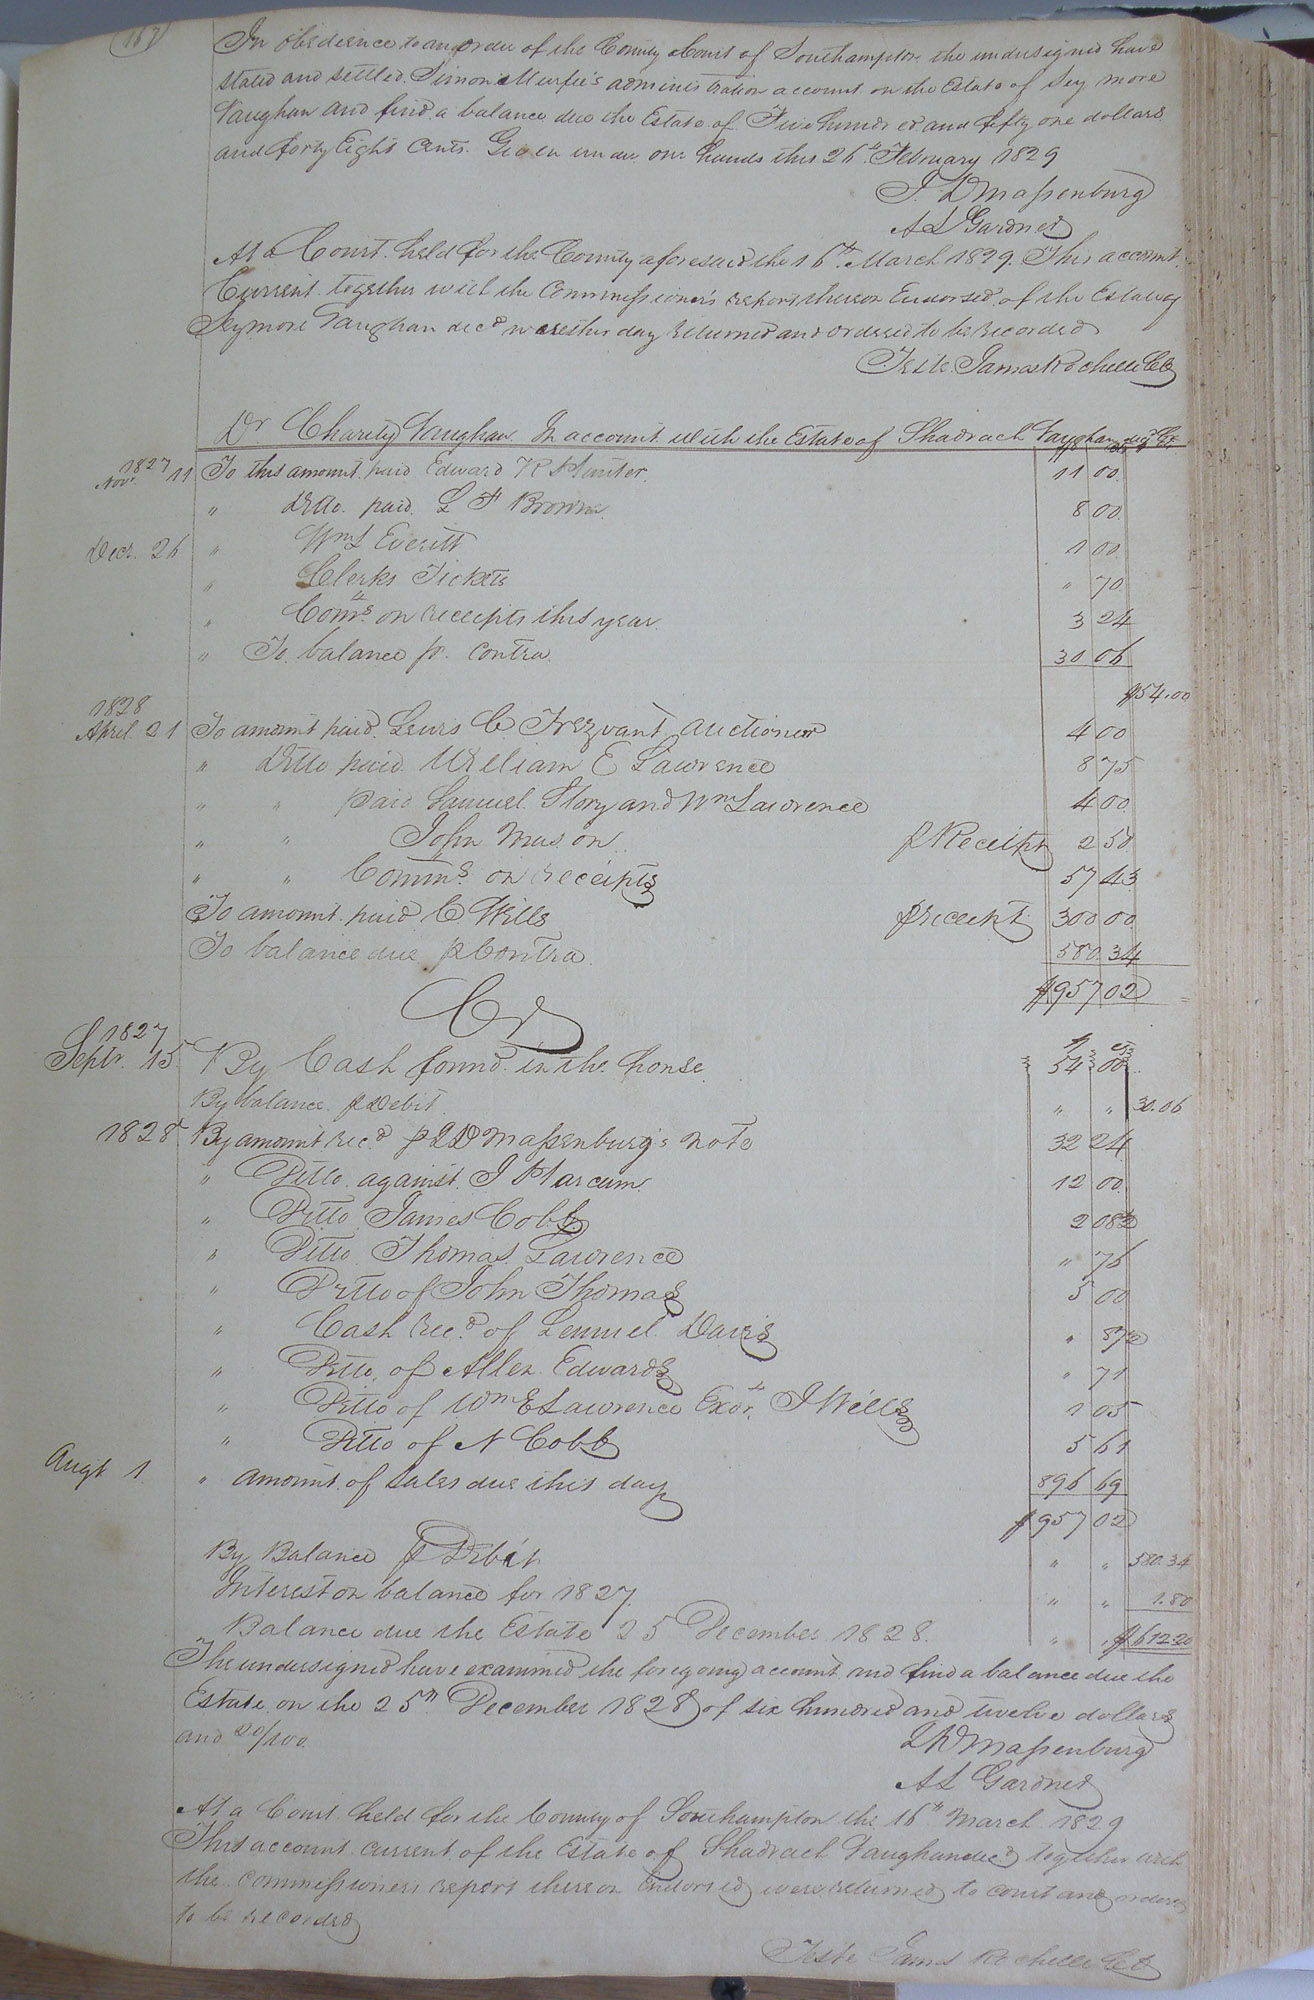 167
In obedience to an order of the County Court of Southampton the undersigned have
stated and settled Simon Murfee's administration account on the Estate of Seymore
Vaughan and find a balance due the Estate of Five hundred and fifty one dollars
and forty Eight Cents. Given under our hands this 26th February 1829
J. D Massenburg
A L Gardner
At a Court held for the County aforesaid the 16th March 1829. This account
Current together with the Commissioner's report thereon Endorsed of the Estate of
Seymore Vaughan decd were this day returned and ordered to be recorded
Teste James Rochelle CC
Dr Charity Vaughan In account with the Estate of Shadrach Vaughan decd Cr
1827 $ cts
Novr 11 To this amount paid Edward R Hunter 11 00
" Ditto paid L F Browne 8 00
Decr. 26 " Wm L Everitt 1 00
" Clerks Tickets " 70
" Comms on receipts this year 3 24
" To balance pr. Contra 30 06
$54.00
1828
April 21 To amount paid Lewis C Trezvant Auctioner 4 00
" Ditto paid William E Lawrence 8 75
" " paid Samuel Story and Wm Lawrence 4 00
" " John Mason p Receipt 2 50
" " Comms on receipts 57 43
To amount paid C Wills p receipt 300 00
To balance due p Contra 580.34
$957 02
Cr
1827 $ cts
Septr. 15 By Cash found in the house 54 00
By balance p Debit " " 30.06
1828 By amount recd p J D Massenburg's note 32 24
" Ditto against J Marcum 12 00
" Ditto James Cobb 2 08½
" Ditto Thomas Lawrence " 76
" Ditto of John Thomas 5 00
" Cash Recd of Lemuel Davis " 87½
" Ditto of Allen Edwards " 71
" Ditto of Wm E Lawrence Exor. J Wills 1 05
" Ditto of N Cobb 5 61
Augt 1 " amount of sales due this day 896 69
$957 02
By Balance p Debit " " 580.34
Interest on balance for 1827 " " 1.80
Balance due the Estate 25 December 1828. " " $612.20
The undersigned have examined the foregoing account and find a balance due the
Estate on the 25th December 1828 of six hundred and twelve dollars
and 20/100
J D Massenburg
A L Gardner
At a Court held for the County of Southampton the 16th March 1829
This account current of the Estate of Shadrach Vaughan decd together with
the commissioners report thereon Endorsed were returned to court and ordered
to be recorded
Teste James Rochelle CC